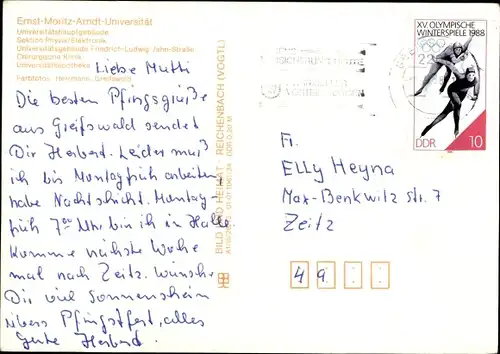 Ernst-Moritz-Arndt-Universität
Universitätshauptgebäude
Sektion Physik/Elektronik
Universitätsgebäude Friedrich-Ludwig-Jahn-Straße
Chirurgische Klinik
Universitätsapotheke
Farbfotos: Herrmann, Greifswald
Liebe Mutti
Die besten Pfingsgrüße
aus Greifswald sendet
Dir Herbert. Leider muß
ich bis Montagfrüh arbeiten
habe Nachtschicht. Montag-
früh 7 00 Uhr bin ich in Halle
Komme nächste Woche
mal nach Zeitz. wünsche
Dir viel Sonnenschein
übers Pfingstfest, alles
Gute Herbert.
BILD UND HEIMAT REICHENBACH (VOGTL)
XV. OLYMPISCHE
WINTERSPIELE 1988
DDR 10
Fr.
Elly Heyna
Max-Benkwitz str. 7
Zeitz
49